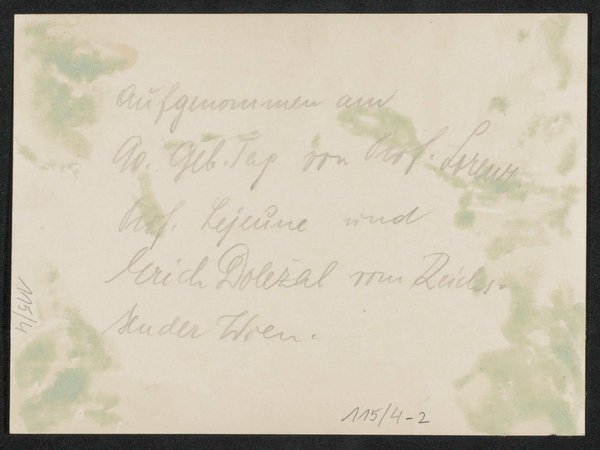 Aufgenommen am
90. Geb. Tag von Prof. Lorenz.
Prof. Lejeune und
Erich Dolezal vom Reichs-
sender Wien.
115/4-2
115/4